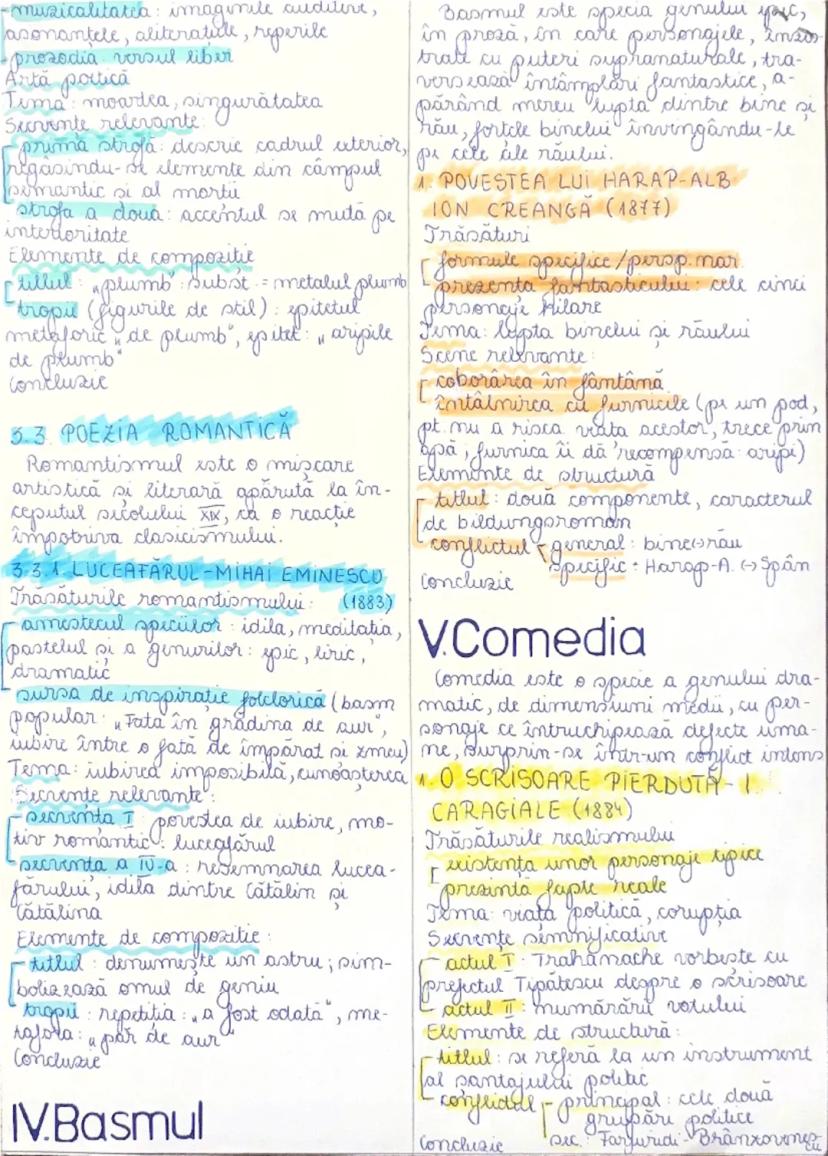 muzicalitatea: imaginile auditive,
asonanțele, aliterațiile, reperile
prozodia versul liber
Artă poetică
Tema: moartea, singurătatea
Secvențe relevante:
prima strofă: descrie cadrul exterior,
regăsindu-se elemente din câmpul
semantic si al mortii
strofa a doua: accentul se mută pe
interioritate
Elemente de compozitie
titlul: „plumb" subst = metalul plumb
tropii (figurile de stil): epitetul
metaforic „de plumb", epitet: „aripile
de plumb"
Concluzie
3.3. POEZIA ROMANTICĂ
Romantismul este o mișcare
artistică și literară apărută la în-
ceputul sicolului XIX, ca o reacție
împotriva clasicismului.
3.3.1. LUCEAFĂRUL-MIHAI EMINESCU
Trăsăturile romantismului: (1883)
amestecul speciilor: idila, meditația,
pastelul și a genurilor: epic, liric,
dramatic
sursa de inspirație folclorică (basm
popular: „Fata în grădina de aur",
iubire între o fată de împărat si zmeu)
Tema: iubirea imposibilă, cunoașterea
Secvente relevante:
secventa I: povestea de iubire, mo-
tiv romantic: luceafărul
secventa a IV-a: resemnarea lucea-
fărului, idila dintre Cătălin și
Cătălina
Elemente de compozitie:
titlul: denumește un astru; sim-
bolizează omul de geniu
tropii: repetitia: „a fost odată", me-
tafora: „păr de aur"
Concluzie
IV.Basmul
Basmul este specia genului epic,
în proză, în care personajele, înzes-
trate cu puteri supranaturale, tra-
versează întâmplări fantastice, a-
părând mereu lupta dintre bine și
rău, forțele binelui învingându-le
pe cele ale răului.
1. POVESTEA LUI HARAP-ALB
ION CREANGĂ (1877)
Trăsături
formule specifice/persp.nar.
prezenta fantasticului: cele cinci
personaje hilare
Tema: lupta binelui și răului
Scene relevante:
coborârea în fântână
întâlnirea cu furnicile (pe un pod,
pt. nu a risca viata acestor, trece prin
apă, furnica îi dă recompensă: aripi)
Elemente de structură
titlul: două componente, caracterul
de bildungsroman
conflictul general: bine↔rău
specific: Harap-A. ↔ Spân
Concluzie
V.Comedia
Comedia este o specie a genului dra-
matic, de dimensiuni medii, cu per-
sonaje ce întruchipează defecte uma-
ne, surprin-se într-un conflict intens
1. O SCRISOARE PIERDUTĂ-I.
CARAGIALE (1884)
Trăsăturile realismului
existența unor personaje tipice
prezintă fapte reale
Tema: viața politică, corupția
Secvențe semnificative
actul I: Trahanache vorbește cu
prefectul Tipătescu despre o scrisoare
actul II: numărării votului
Elemente de structură:
titlul: se referă la un instrument
al santajului politic
conflictul principal: cele două
grupări politice
sec.: Farfuridi-Brânzovenescu
Concluzie